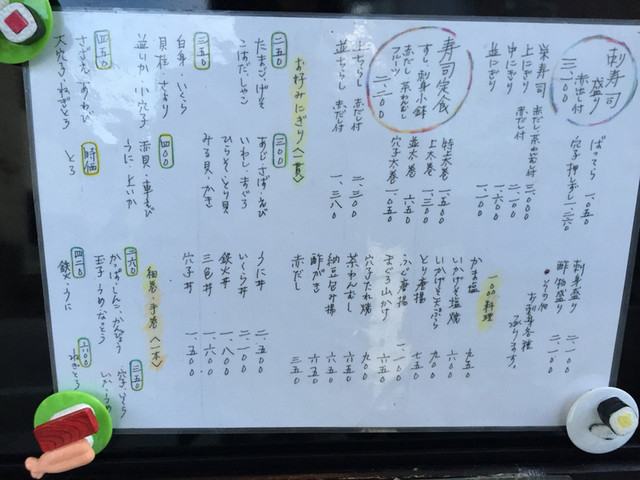 刺寿司
盛り
赤出し付
三、一〇〇
ばってら 一、〇五〇
穴子押ずし 一、二六〇
上にぎり 赤だし付 二、一〇〇
中にぎり 〃 一、六〇〇
並にぎり 〃 一、一〇〇
寿司定食
すし、刺身小鉢
赤だし 茶わんむし
フルーツ
二、一〇〇
特太巻 一、五〇〇
上太巻 一、三〇〇
並太巻 六五〇
穴子太巻 一、〇五〇
上ちらし 赤だし付
並ちらし 赤だし付 一、三八〇
お好みにぎり〈一貫〉
二五〇
たまご、げそ
こはだ、しゃこ
三〇〇
あじ、さば、えび
いわし、まぐろ
ひらめ、とり貝
みる貝、かき
三五〇
白身、いくら
貝柱、さより
並いか 小穴子
四〇〇
赤貝・車えび
うに、上いか
四五〇
さざえ、あわび
大穴子、ねぎとろ
時価
とろ
刺身盛り 二、一〇〇
酢物盛り 二、一〇〇
お刺身各種
承ります。
一品料理
かま塩 九五〇
いかげそ塩焼 六〇〇
いかげそ天ぷら 九〇〇
とり唐揚 七五〇
ふぐ唐揚 一、一〇〇
まぐろ山かけ
穴子たれ焼 九〇〇
茶わんむし 六五〇
納豆包み揚 六五〇
酢がき 六五〇
赤だし 三五〇
うに丼 二、五〇〇
いくら丼 二、一〇〇
鉄火丼 一、八〇〇
三色丼 一、六〇〇
穴子丼 一、五〇〇
細巻・手巻〈一本〉
二六〇
かっぱ、しんこ、かんぴょう
玉子、うめ、なっとう
三五〇
穴子、いくら
四二〇
鉄火・うに
ねぎとろ